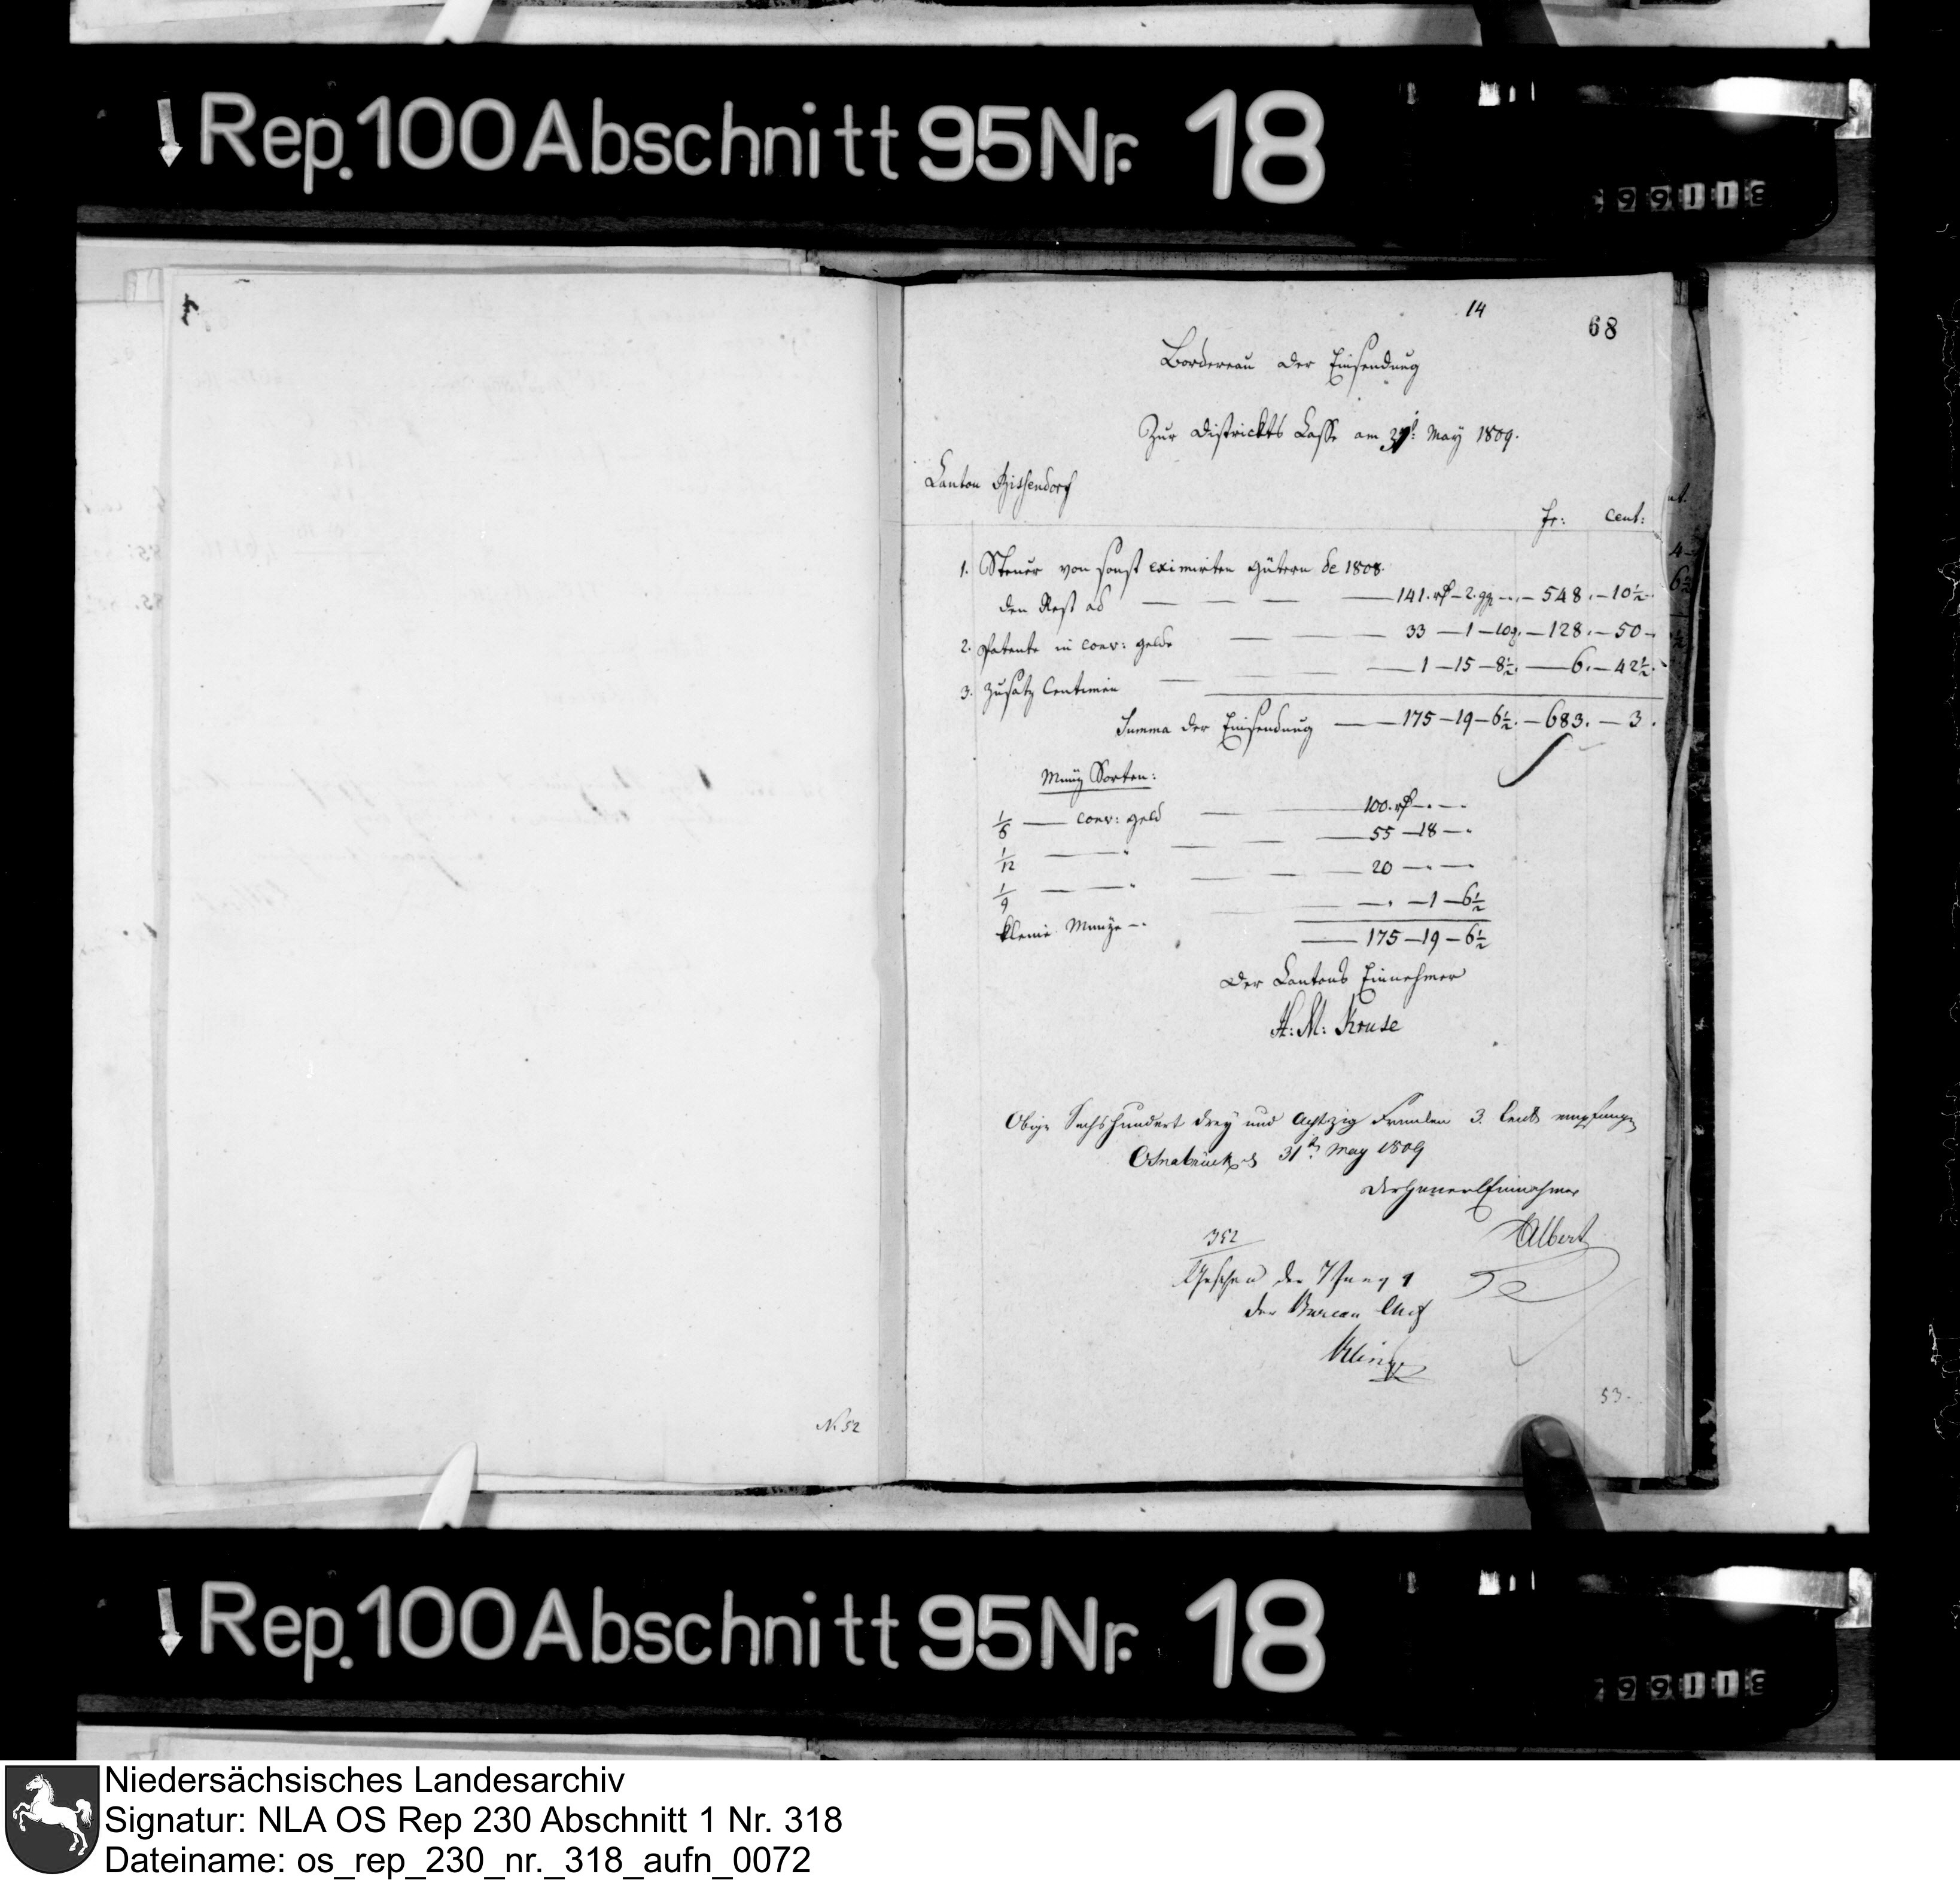 Rep. 100 Abschnitt 95 Nr. 18
99118
14
68
Bordereau der Einsendung
Zur Districkts Casse am 31t: May 1809.
Canton Bissendorf
Fr: Cent:
1. Steuer von sonst eximirten Gütern de 1808.
den Rest ad — — — 141. rthl – 2. ggr – – 548. – 10½
2. Patente in Conv: Gelde — — 33 – 1 – 10 – 128. – 50 –
3. Zusatz Centimen — — — 1 – 15 – 8½ – 6. – 42½.
Summa der Einsendung — 175 – 19 – 6½. – 683. – 3.
Münz Sorten:
1/6 — Conv: Geld — — 100. rthl – . –
1/12 — " — — 55 – 18 – "
1/9 — " — — 20 – " –
kleine Münze – . — – . – 1 – 6½
— 175 – 19 – 6½
Der Cantons Einnehmer
H: M: Kruse
Obige Sechshundert drey und Achtzig Franken 3. Cents empfangen
Osnabrück d 31t. May 1809
Der General Einnehmer
Albert
352
Gesehen den 7 Juny
Der Bureau Chef
Klinge
53.
N. 52
Rep. 100 Abschnitt 95 Nr. 18
99118
Niedersächsisches Landesarchiv
Signatur: NLA OS Rep 230 Abschnitt 1 Nr. 318
Dateiname: os_rep_230_nr._318_aufn_0072